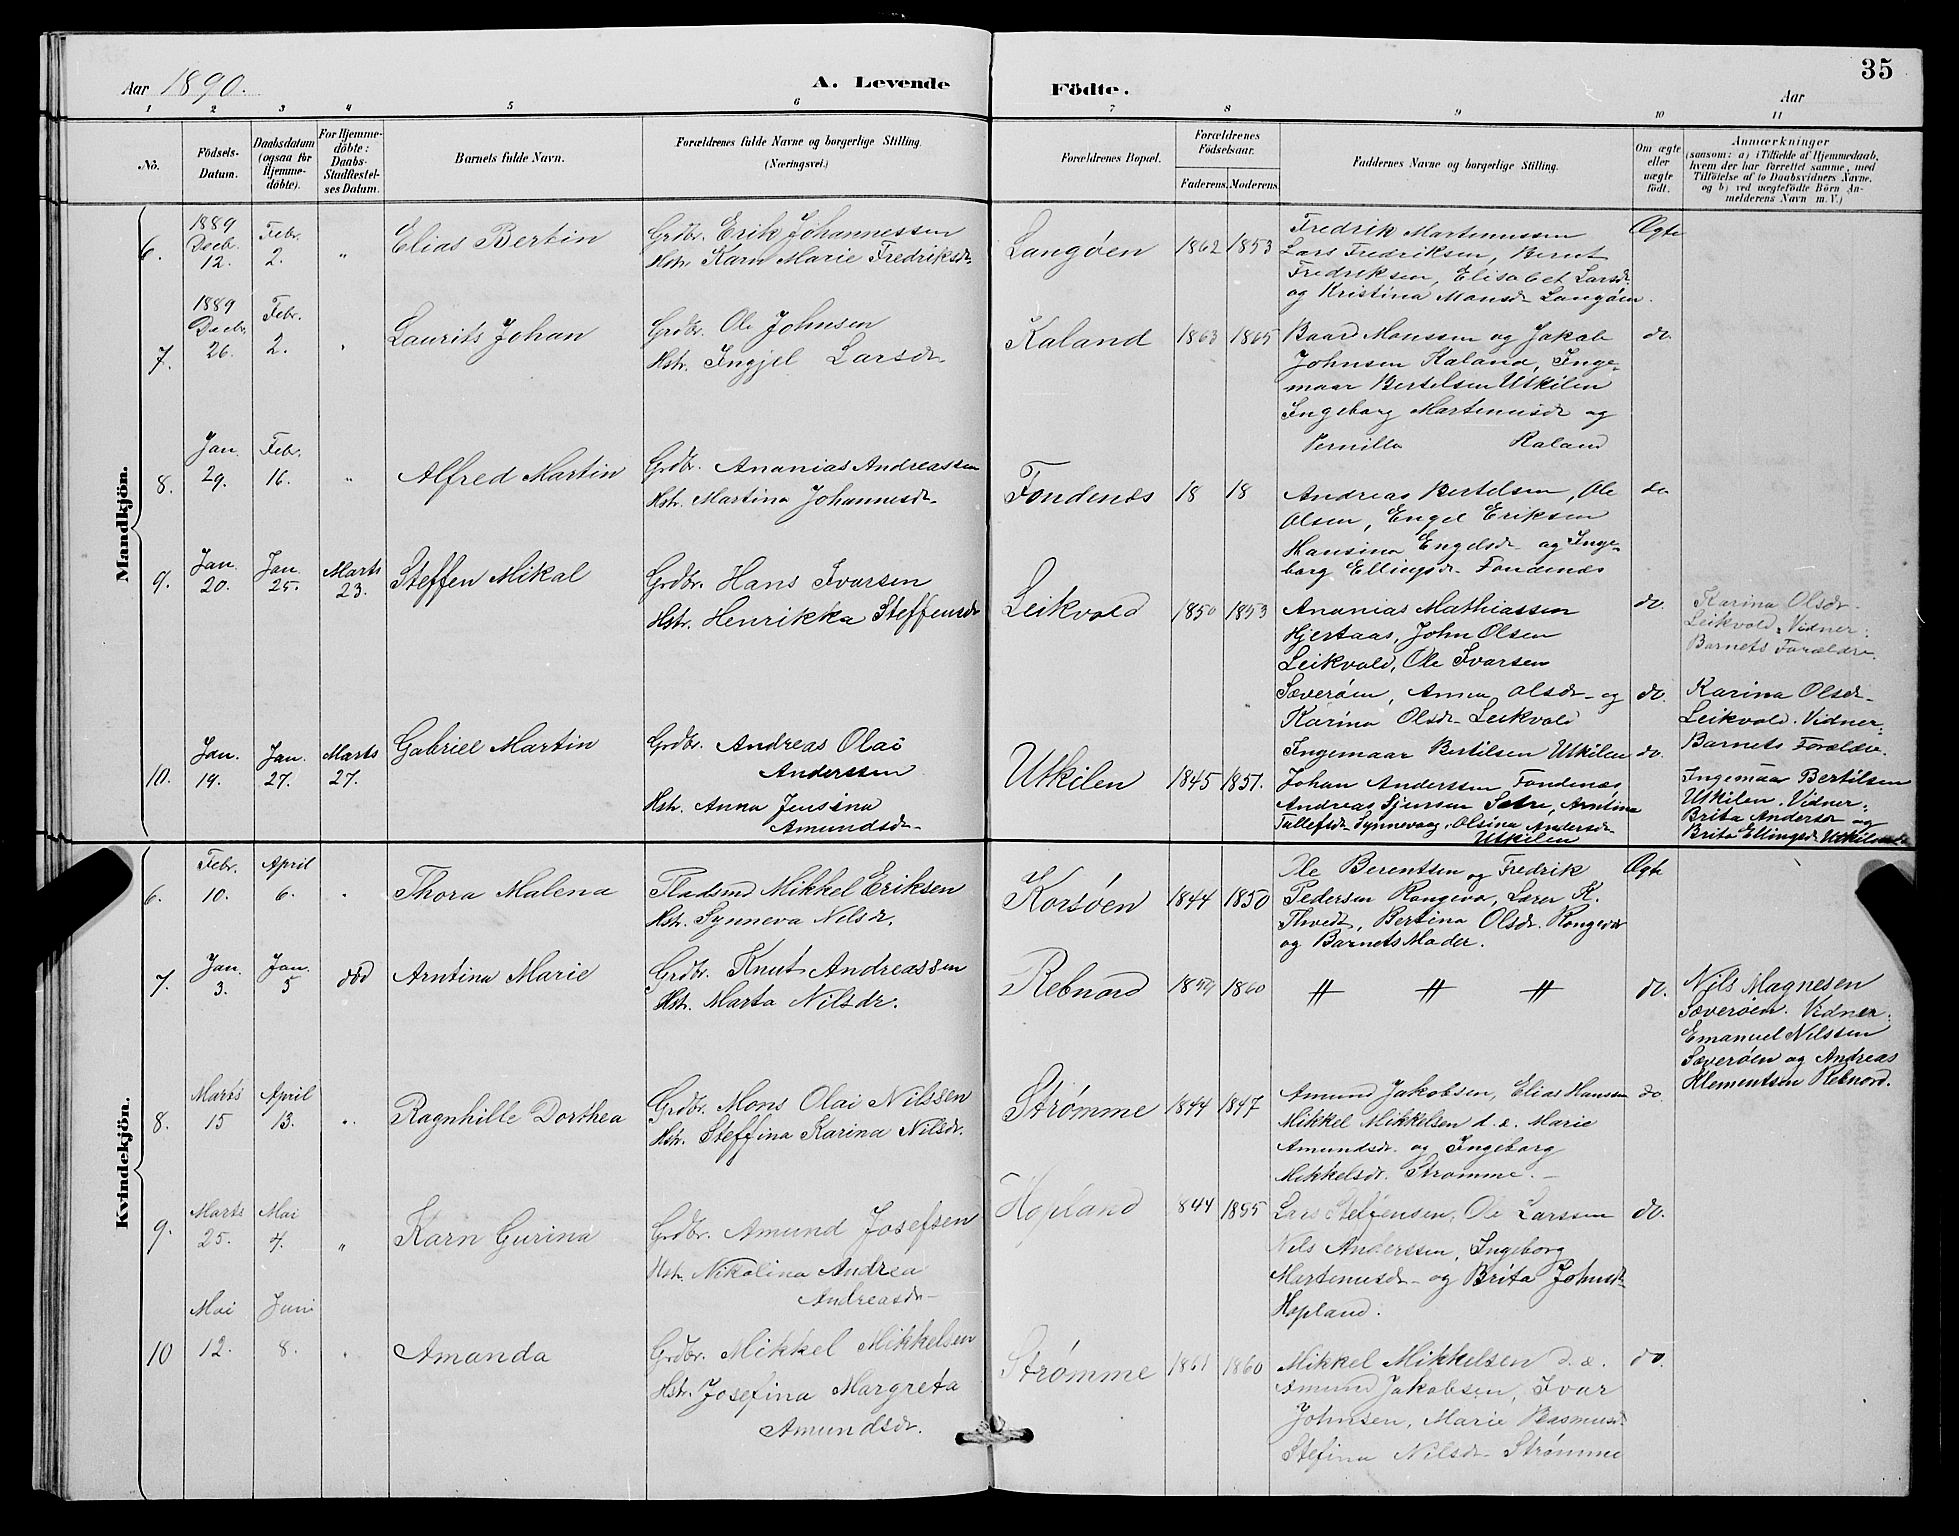 Aar 1890.
A. Levende Födte.
Aar
35
1 2 3 4 5 6 7 8 9 10 11
Nö.
Födsels-Datum.
Daabsdatum (ogsaa for Hjemme-döbte).
For Hjemme-döbte: Daabs-Stadfæstel-ses Datum.
Barnets fulde Navn.
Forældrenes fulde Navne og borgerlige Stilling. (Næringsvei.)
Forældrenes Bopæl.
Forældrenes Födselsaar.
Faderens. Moderens.
Faddernes Navne og borgerlige Stilling.
Om ægte eller uægte födt.
Anmærkninger
(saasom: a) i Tilfælde af Hjemmedaab,
hvem der har forrettet samme, med
Tilföielse af to Daabsvidners Navne,
og b) ved uægtefödte Börn An-
melderens Navn m. V.)
Mandkjön.
6. 1889 Decbr. 12. Febr. 2. " Elias Bertin
Grdbr. Erik Johannessen
Hstr. Karn Marie Fredriksdr.
Langøen 1862 1853
Fredrik Martenussen
Lars Fredriksen, Bernt
Fredriksen, Elisabet Larsdr.
og Kristina Monsdr Langøen.
Ægte
7. 1889 Decbr. 26. Febr. 2. " Laurits Johan
Grdbr. Ole Johnsen
Hstr. Ingjel Larsdr
Kaland 1863 1865
Baard Monssen og Jakob
Johnsen Kaland, Inge-
maar Bertelsen Utkilen
Ingeborg Martenusdr og
Pernilla Kaland
do
8. Jan. 29. Febr. 16. " Alfred Martin
Grdbr. Ananias Andreassen
Hstr. Martina Johannesdr
Fondenæs 18 18
Andreas Bertelsen, Ole
Olsen, Engel Eriksen
Hansina Engelsdr og Inge-
borg Ellingsdr Fondenæs
do
9. Jan. 20. Jan. 25. Marts 23. Steffen Mikal
Grdbr. Hans Ivarsen
Hstr. Henrikka Steffensdr
Leikvold 1850 1853
Ananias Mathiassen
Hjertaas, John Olsen
Leikvold, Ole Ivarsen
Sæverøen, Anna Olsdr og
Karina Olsdr Leikvold
do.
Karina Olsdr
Leikvold. Vidner:
Barnets Forældre.
do.
Karina Olsdr
Leikvold. Vidner:
Barnets Forældre.
10. Jan. 19. Jan. 27. Marts 27. Gabriel Martin
Grdbr. Andreas Olai
Anderssen
Hstr. Anna Jensina
Amundsdr
Utkilen 1845 1851.
Ingemaar Bertilsen Utkilen
Johan Anderssen Fondenæs
Andreas Sjursen Sætre, Arntina
Tollefsdr Synnevaag, Olsina Andersdr
Utkilen
do.
Ingemaar Bertilsen
Utkilen. Vidner:
Brita Andersdr og
Brita Ellingsdr Utkilen
Kvindekjön.
6. Febr. 10. April 6. " Thora Malena
Pladsmd Mikkel Eriksen
Hstr. Synneva Nilsdr.
Korsøen 1844 1850
Ole Berentsen og Fredrik
Pedersen Rongevær, Lærer K.
Thvedt, Bertina Olsdr. Rongevær
og Barnets Moder.
Ægte
7. Jan. 3. Jan. 5 død Arntina Marie
Grdbr. Knut Andreassen
Hstr. Marta Nilsdr.
Rebnord 1859 1860
〃 〃 〃
do.
Nils Magnesen
Sæverøen. Vidner:
Emanuel Nilssen
Sæverøen og Andreas
Klementsen Rebnord.
8. Marts 15 April 13. " Ragnhille Dorthea
Grdbr. Mons Olai Nilssen
Hstr. Steffina Karina Nilsdr.
Strømme 1844 1847
Amund Jakobsen, Elias Hanssen
Mikkel Mikkelsen d. æ. Marie
Amundsdr og Ingeborg
Mikkelsdr. Strømme.
do.
9. Marts 25. Mai 4. " Karn Gurina
Grdbr. Amund Josefsen
Hstr. Nikolina Andrea
Andreasdr
Hopland 844 1855
Lars Steffensen, Ole Larssen
Nils Anderssen, Ingeborg
Martenusdr og Brita Johnsdr
Hopland.
do.
10 Mai 12. Juni 8. " Amanda
Grdbr. Mikkel Mikkelsen
Hstr. Josefina Margreta
Amundsdr.
Strømme 1861 1860
Mikkel Mikkelsen d. æ.
Amund Jakobsen, Ivar
Johnsen, Marie Rasmusdr
Stefina Nilsdr Strømme
do.